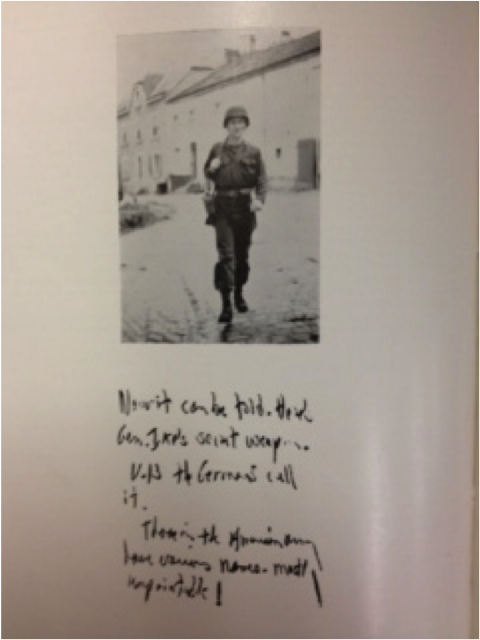 Now it can be told. Here's
Gen. Ike's secret weapon.
V-13 the Germans call
it.
Those in the American army
have various names - mostly
unprintable!